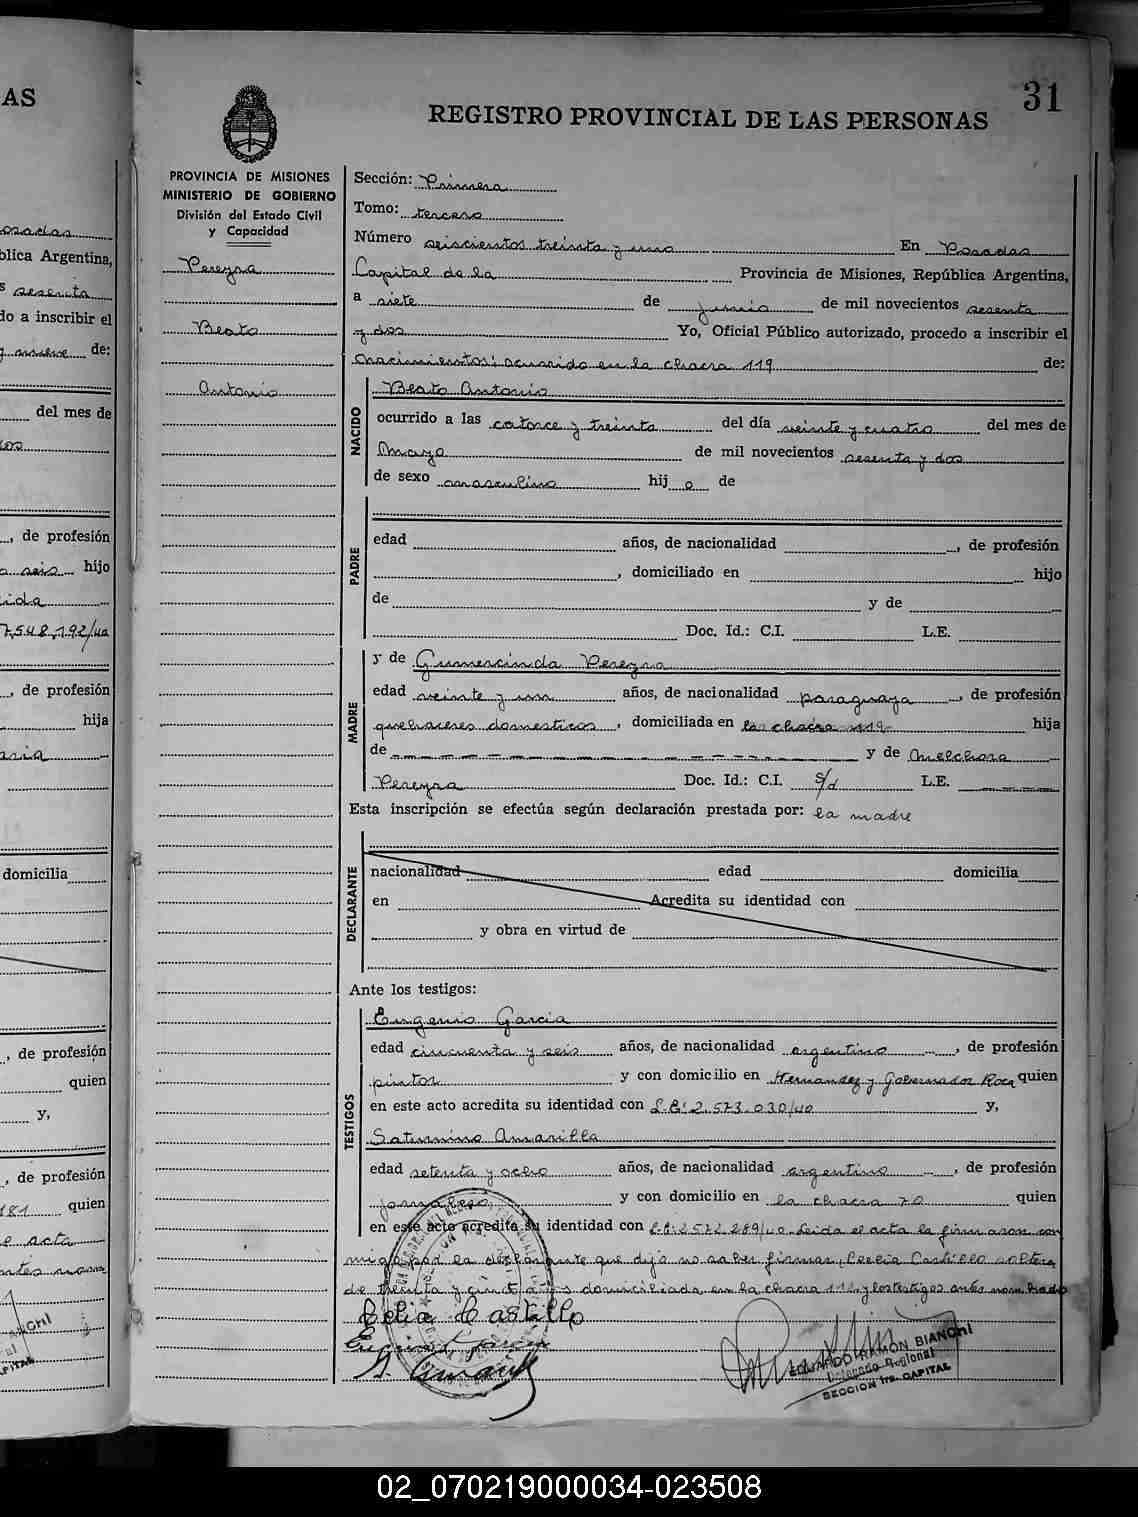 AS
osadas
blica Argentina,
s sesenta
do a inscribir el
de:
del mes de
, de profesión
seis hijo
7.548.192/40
, de profesión
hija
domicilia
, de profesión
quien
y,
, de profesión
181 quien
acta
31
REGISTRO PROVINCIAL DE LAS PERSONAS
PROVINCIA DE MISIONES
MINISTERIO DE GOBIERNO
División del Estado Civil
y Capacidad
Pereyra
Beato
Antonio
Sección: Primera
Tomo: tercero
Número seiscientos treinta y uno En Posadas
Capital de la Provincia de Misiones, República Argentina,
a siete de junio de mil novecientos sesenta
y dos Yo, Oficial Público autorizado, procedo a inscribir el
nacimiento: ocurrido en la chacra 119 de:
NACIDO
Beato Antonio
ocurrido a las catorce y treinta del día veinte y cuatro del mes de
Mayo de mil novecientos sesenta y dos
de sexo masculino hij o de
PADRE
edad años, de nacionalidad , de profesión
, domiciliado en hijo
de y de
Doc. Id.: C.I. L.E.
MADRE
y de Gumercinda Pereyra
edad veinte y un años, de nacionalidad paraguaya , de profesión
quehaceres domesticos , domiciliada en la chacra 119 hija
de y de Melchora
Pereyra Doc. Id.: C.I. s/d L.E.
Esta inscripción se efectúa según declaración prestada por: la madre
DECLARANTE
nacionalidad edad domicilia
en Acredita su identidad con
y obra en virtud de
Ante los testigos:
TESTIGOS
Eugenio Garcia
edad cincuenta y seis años, de nacionalidad argentino , de profesión
pintor y con domicilio en Hernandez y Gobernador Roca quien
en este acto acredita su identidad con 2.573.030/40 y,
Saturnino Amarilla
edad setenta y ocho años, de nacionalidad argentino , de profesión
jornalero y con domicilio en la chacra 70 quien
en este acto acredita su identidad con 2.572.289/40. Leida el acta la firmaron con
migo por la declarante que dijo no saber firmar, Celia Castillo soltera
de treinta y domiciliada en la chacra y los testigos antes nombrados
Celia Castillo
EDUARDO RAMON BIANCHI
Delegado Regional
SECCION 1ra. CAPITAL
02_070219000034-023508